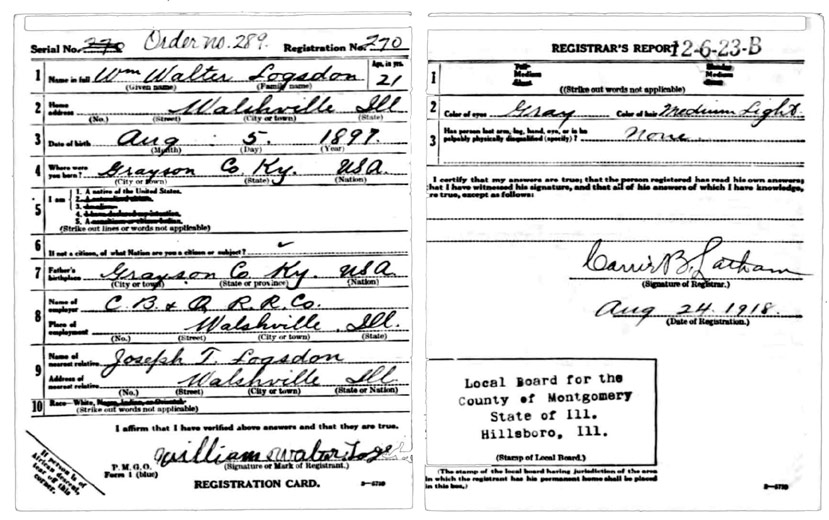 Serial No. 270 Order no. 289. Registration No. 270
1 Name in full Wm Walter Logsdon Age, in yrs. 21
(Given name) (Family name)
2 Home address Walshville Ill
(No.) (Street) (City or town) (State)
3 Date of birth Aug 5. 1897.
(Month) (Day) (Year)
4 Where were you born? Grayson Co. Ky. USA
(City or town) (State) (Nation)
5 I am
1. A native of the United States.
2.
3.
4.
5.
(Strike out lines or words not applicable)
6 If not a citizen, of what Nation are you a citizen or subject? ✓
7 Father's birthplace Grayson Co. Ky. USA
(City or town) (State or province) (Nation)
8 Name of employer C. B. & Q. R. R. Co.
Place of employment Walshville Ill.
(No.) (Street) (City or town) (State)
9 Name of nearest relative Joseph T. Logsdon
Address of nearest relative Walshville Ill
(No.) (Street) (City or town) (State or Nation)
10 Race—White,
(Strike out words not applicable)
I affirm that I have verified above answers and that they are true.
William Walter
P. M. G. O.
Form 1 (blue)
(Signature or Mark of Registrant.)
REGISTRATION CARD.
If person is of
African descent,
tear off this
corner.
REGISTRAR'S REPORT 12-6-23-B
1 Medium Medium
((Strike out words not applicable)
2 Color of eyes Gray Color of hair Medium Light.
3 Has person lost arm, leg, hand, eye, or is he
palpably physically disqualified (specify)? None
I certify that my answers are true; that the person registered has read his own answers;
that I have witnessed his signature, and that all of his answers of which I have knowledge,
re true, except as follows:
Carrie B. Latham
(Signature of Registrar.)
Aug 24. 1918.
(Date of Registration.)
Local Board for the
County of Montgomery
State of Ill.
Hillsboro, Ill.
(Stamp of Local Board.)
(The stamp of the local board having jurisdiction of the area
in which the registrant has his permanent home shall be placed
in this box.)